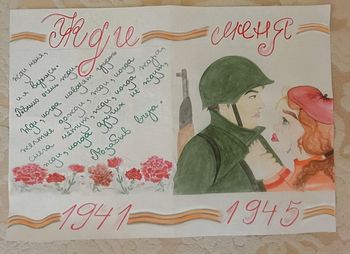 Жди меня
Жди меня,
и я вернусь.
Только очень жди,
Жди, когда наводят грусть
желтые дожди,
Жди, когда снега метут,
Жди, когда жара,
Жди, когда других не ждут,
Позабыв вчера.
1941 1945